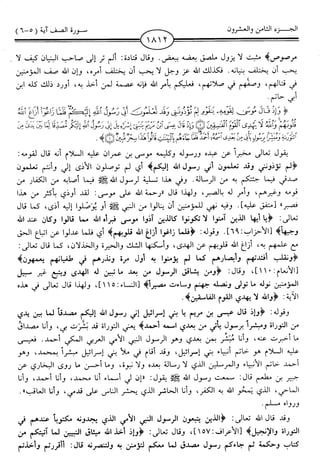 الجزء الثامن والعشرون
١٨١٢
سورة الصف آية (٥-٦)
مرصوص﴾ مثبت لا يزول ملصق بعضه ببعض. وقال قتادة: ألم تر إلى صاحب البنيان كيف لا
يحب أن يختلف بنيانه. فكذلك الله عز وجل لا يحب أن يختلف أمره، وإن الله صف المؤمنين
في قتالهم، وصفهم في صلاتهم، فعليكم بأمر الله فإنه عصمة لمن أخذ به، أورد ذلك كله ابن
أبي حاتم.
يقول تعالى مخبراً عن عبده ورسوله وكليمه موسى بن عمران عليه السلام أنه قال لقومه:
﴿لم تؤذونني وقد تعلمون أني رسول الله إليكم﴾ أي لم توصلون الأذى إلي وأنتم تعلمون
صدقي فيما جئتكم به من الرسالة. وفي هذا تسلية لرسول الله ﷺ فيما أصابه من الكفار من
قومه وغيرهم، وأمر له بالصبر، ولهذا قال «رحمة الله على موسى: لقد أوذي بأكثر من هذا
فصبر» [متفق عليه]. وفيه نهي للمؤمنين أن ينالوا من النبي ﷺ أو يُوصلوا إليه أذى، كما قال
تعالى: ﴿يا أيها الذين آمنوا لا تكونوا كالذين آذوا موسى فبرأه الله مما قالوا وكان عند الله
وجيهاً﴾ [الأحزاب:٦٩]. وقوله: ﴿فلما زاغوا أزاغ الله قلوبهم﴾ أي فلما عدلوا عن اتباع الحق
مع علمهم به، أزاغ الله قلوبهم عن الهدى، وأسكنها الشك والحيرة والخذلان، كما قال تعالى:
﴿ونقلب أفئدتهم وأبصارهم كما لم يؤمنوا به أول مرة ونذرهم في طغيانهم يعمهون﴾
[الأنعام:١١٠]، وقال: ﴿ومن يشاقق الرسول من بعد ما تبين له الهدى ويتبع غير سبيل
المؤمنين نوله ما تولى ونصله جهنم وساءت مصيراً﴾ [النساء:١١٥]، ولهذا قال تعالى في هذه
الآية: ﴿والله لا يهدي القوم الفاسقين﴾.
وقوله: ﴿وإذ قال عيسى بن مريم يا بني إسرائيل إني رسول الله إليكم مصدقاً لما بين يدي
من التوراة ومبشراً برسول يأتي من بعدي اسمه أحمد﴾ يعني التوراة قد بشّرت بي، وأنا مصداق
ما أخبرت عنه، وأنا مُبشّر بمن بعدي وهو الرسول النبي الأمي العربي المكي أحمد. فعيسى
عليه السلام هو خاتم أنبياء بني إسرائيل، وقد أقام في ملأ بني إسرائيل مبشراً بمحمد، وهو
أحمد خاتم الأنبياء والمرسلين الذي لا رسالة بعده ولا نبوة، وما أحسن ما روى البخاري عن
جبير بن مطعم قال: سمعت رسول الله ﷺ يقول: «إن لي أسماء أنا محمد، وأنا أحمد، وأنا
الماحي، الذي يَمحُو الله به الكفر، وأنا الحاشر الذي يحشر الناس على قدمي، وأنا العاقب».
ورواه مسلم.
وقد قال الله تعالى: ﴿الذين يتبعون الرسول النبي الأمي الذي يجدونه مكتوباً عندهم في
التوراة والإنجيل﴾ [الأعراف:١٥٧]، وقال تعالى: ﴿وإذ أخذ الله ميثاق النبيين لما آتيتكم من
كتاب وحكمة ثم جاءكم رسول مصدق لما معكم لتؤمنن به ولتنصرنه قال: أأقررتم وأخذتم